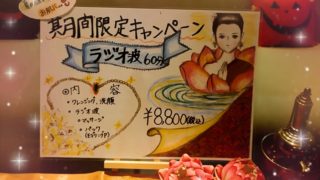 期間限定キャンペーン
ラジオ波 60分
◎内容
・クレンジング、洗顔
・ラジオ波
・マッサージ
・パック
¥8,800(税込)